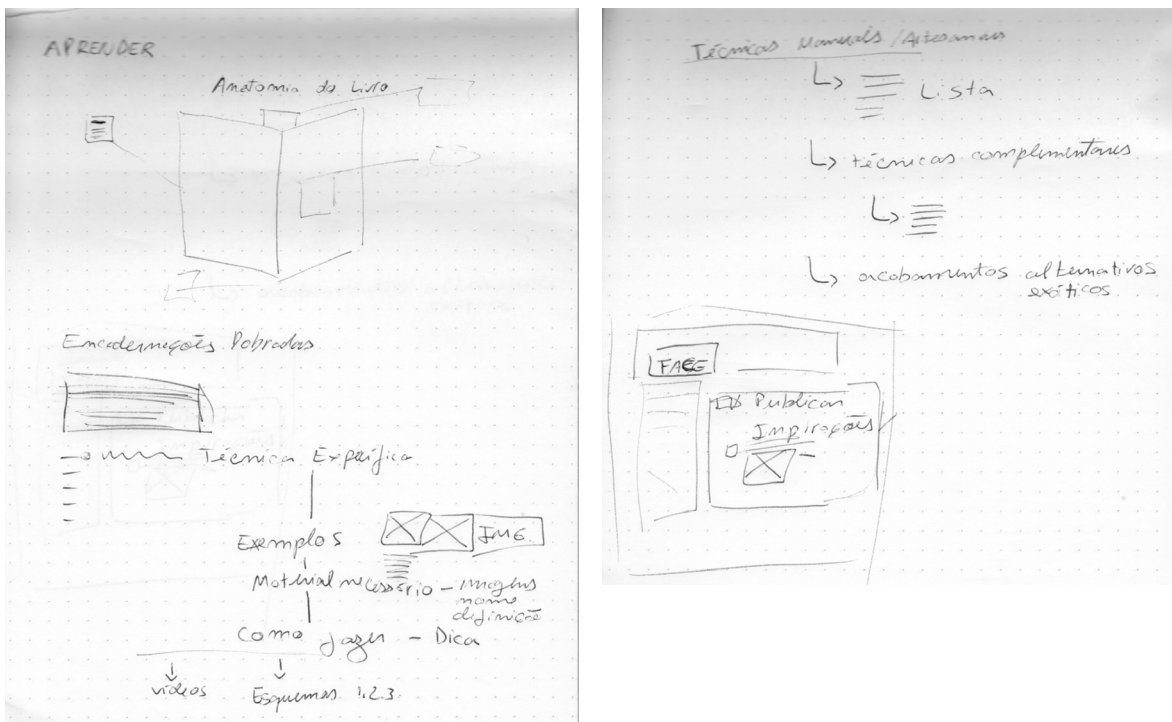 APRENDER
Anatomia do Livro
Encadernações Dobradas
Técnica Expecífica
Exemplos
IMG.
Material necessário - imagens
nome
definição
Como fazer - Dica
vídeos
Esquemas 1.2.3.
Técnicas Manuais / Artesanais
Lista
técnicas complementares
acabamentos alternativos
exóticos
FACE
Publicar
Impirações